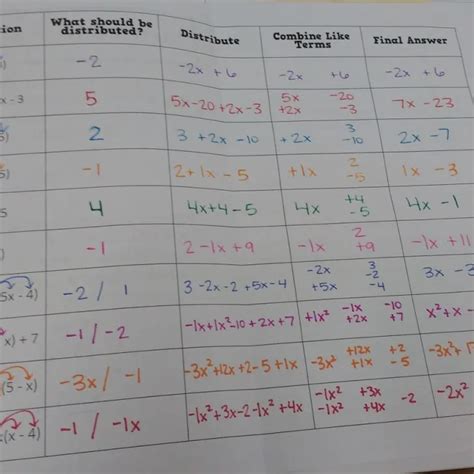 tion What should be distributed? Distribute Combine Like Terms Final Answer
-2 -2x + 6 -2x +6 -2x + 6
x - 3 5 5x-20+2x-3 5x -20 +2x -3 7x - 23
5) 2 3 + 2x - 10 +2x 3 -10 2x - 7
5) -1 2 + 1x - 5 +1x 2 -5 1x - 3
5 4 4x+4-5 4x +4 -5 4x - 1
) -1 2 - 1x + 9 -1x 2 +9 -1x + 11
(5x - 4) -2 / 1 3 -2x -2 +5x -4 -2x +5x 3 -2 -4 3x - 3
x) + 7 -1 / -2 -1x+1x²-10+2x+7 +1x² -1x +2x -10 +7 x² + x -
(5 - x) -3x / -1 -3x²+12x+2-5+1x -3x² +12x +1x +2 -5 -3x² +
(x - 4) -1 / -1x -1x²+3x-2-1x²+4x -1x² -1x² +3x +4x -2 -2x²